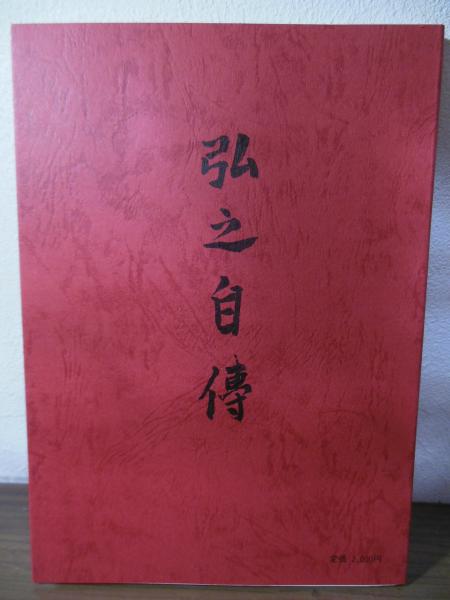 弘之自傳
定価 2,000円